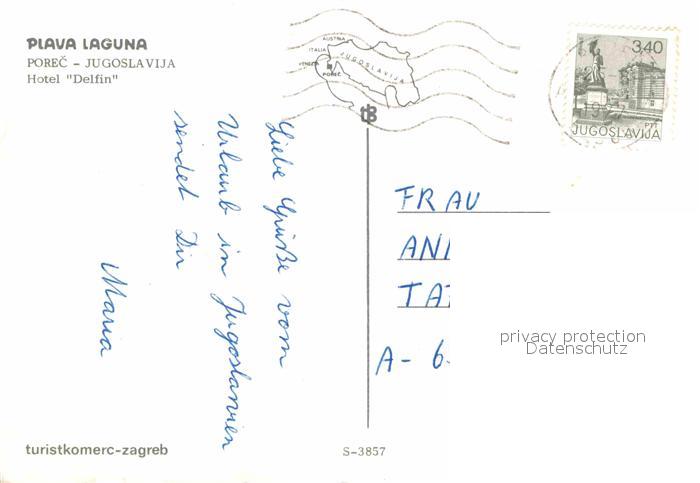 PLAVA LAGUNA
POREČ - JUGOSLAVIJA
Hotel "Delfin"
AUSTRIA
ITALIA
JUGOSLAVIJA
POREČ
3,40
PTT
JUGOSLAVIJA
Liebe Grüße vom
Urlaub in Jugoslawien
sendet Dir
Maria
FRAU
ANI
TA
A- 6
privacy protection
Datenschutz
turistkomerc-zagreb
S-3857